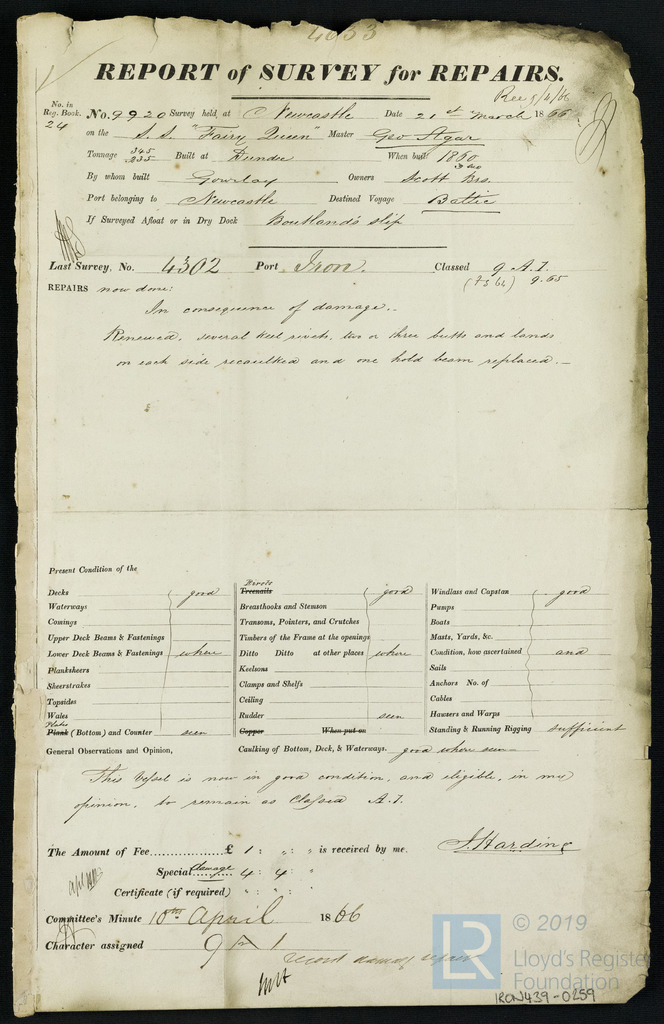 4633
REPORT of SURVEY for REPAIRS.
Rec 9/4/66
No. in Reg. Book. 24
No. 9920 Survey held, at Newcastle Date 21st March 1866
on the S.S. "Fairy Queen" Master Geo Agar
Tonnage 345 235 Built at Dundee When built 1860 3 mo
By whom built Gourlay Owners Scott Brs.
Port belonging to Newcastle Destined Voyage Baltic
If Surveyed Afloat or in Dry Dock Boutland's slip
Last Survey, No. 4302 Port Iron. Classed 9 A.1.
9.65
REPAIRS now done:
In consequence of damage..
Renewed, several keel rivets, two or three butts and lands
on each side recaulked and one hold beam replaced.—
Present Condition of the
Decks good
Waterways
Comings
Upper Deck Beams & Fastenings
Lower Deck Beams & Fastenings where
Planksheers
Sheerstrakes
Topsides
Wales
Plates
Plank (Bottom) and Counter seen
Rivets
Treenails good
Breasthooks and Stemson
Transoms, Pointers, and Crutches
Timbers of the Frame at the openings
Ditto Ditto at other places where
Keelsons
Clamps and Shelfs
Ceiling
Rudder seen
Copper When put on
Windlass and Capstan good
Pumps
Boats
Masts, Yards, &c.
Condition, how ascertained and
Sails
Anchors No. of
Cables
Hawsers and Warps
Standing & Running Rigging sufficient
General Observations and Opinion, Caulking of Bottom, Deck, & Waterways. good where seen
This vessel is now in good condition, and eligible, in my
opinion, to remain as Classed A.1.
The Amount of Fee............... £ 1 : " : " is received by me. J. Harding
Special damage 4 : 4 : "
Certificate (if required) " : " : "
Committee's Minute 10th April 1866
Character assigned 9 A 1
record damage repairs
LR
© 2019
Lloyd's Register
Foundation
IRON439-0259